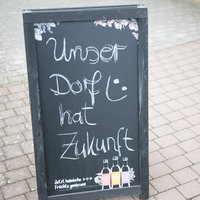 Unser
Dorf
hat
Zukunft
Jetzt heimische >>>
Früchte geniessen!